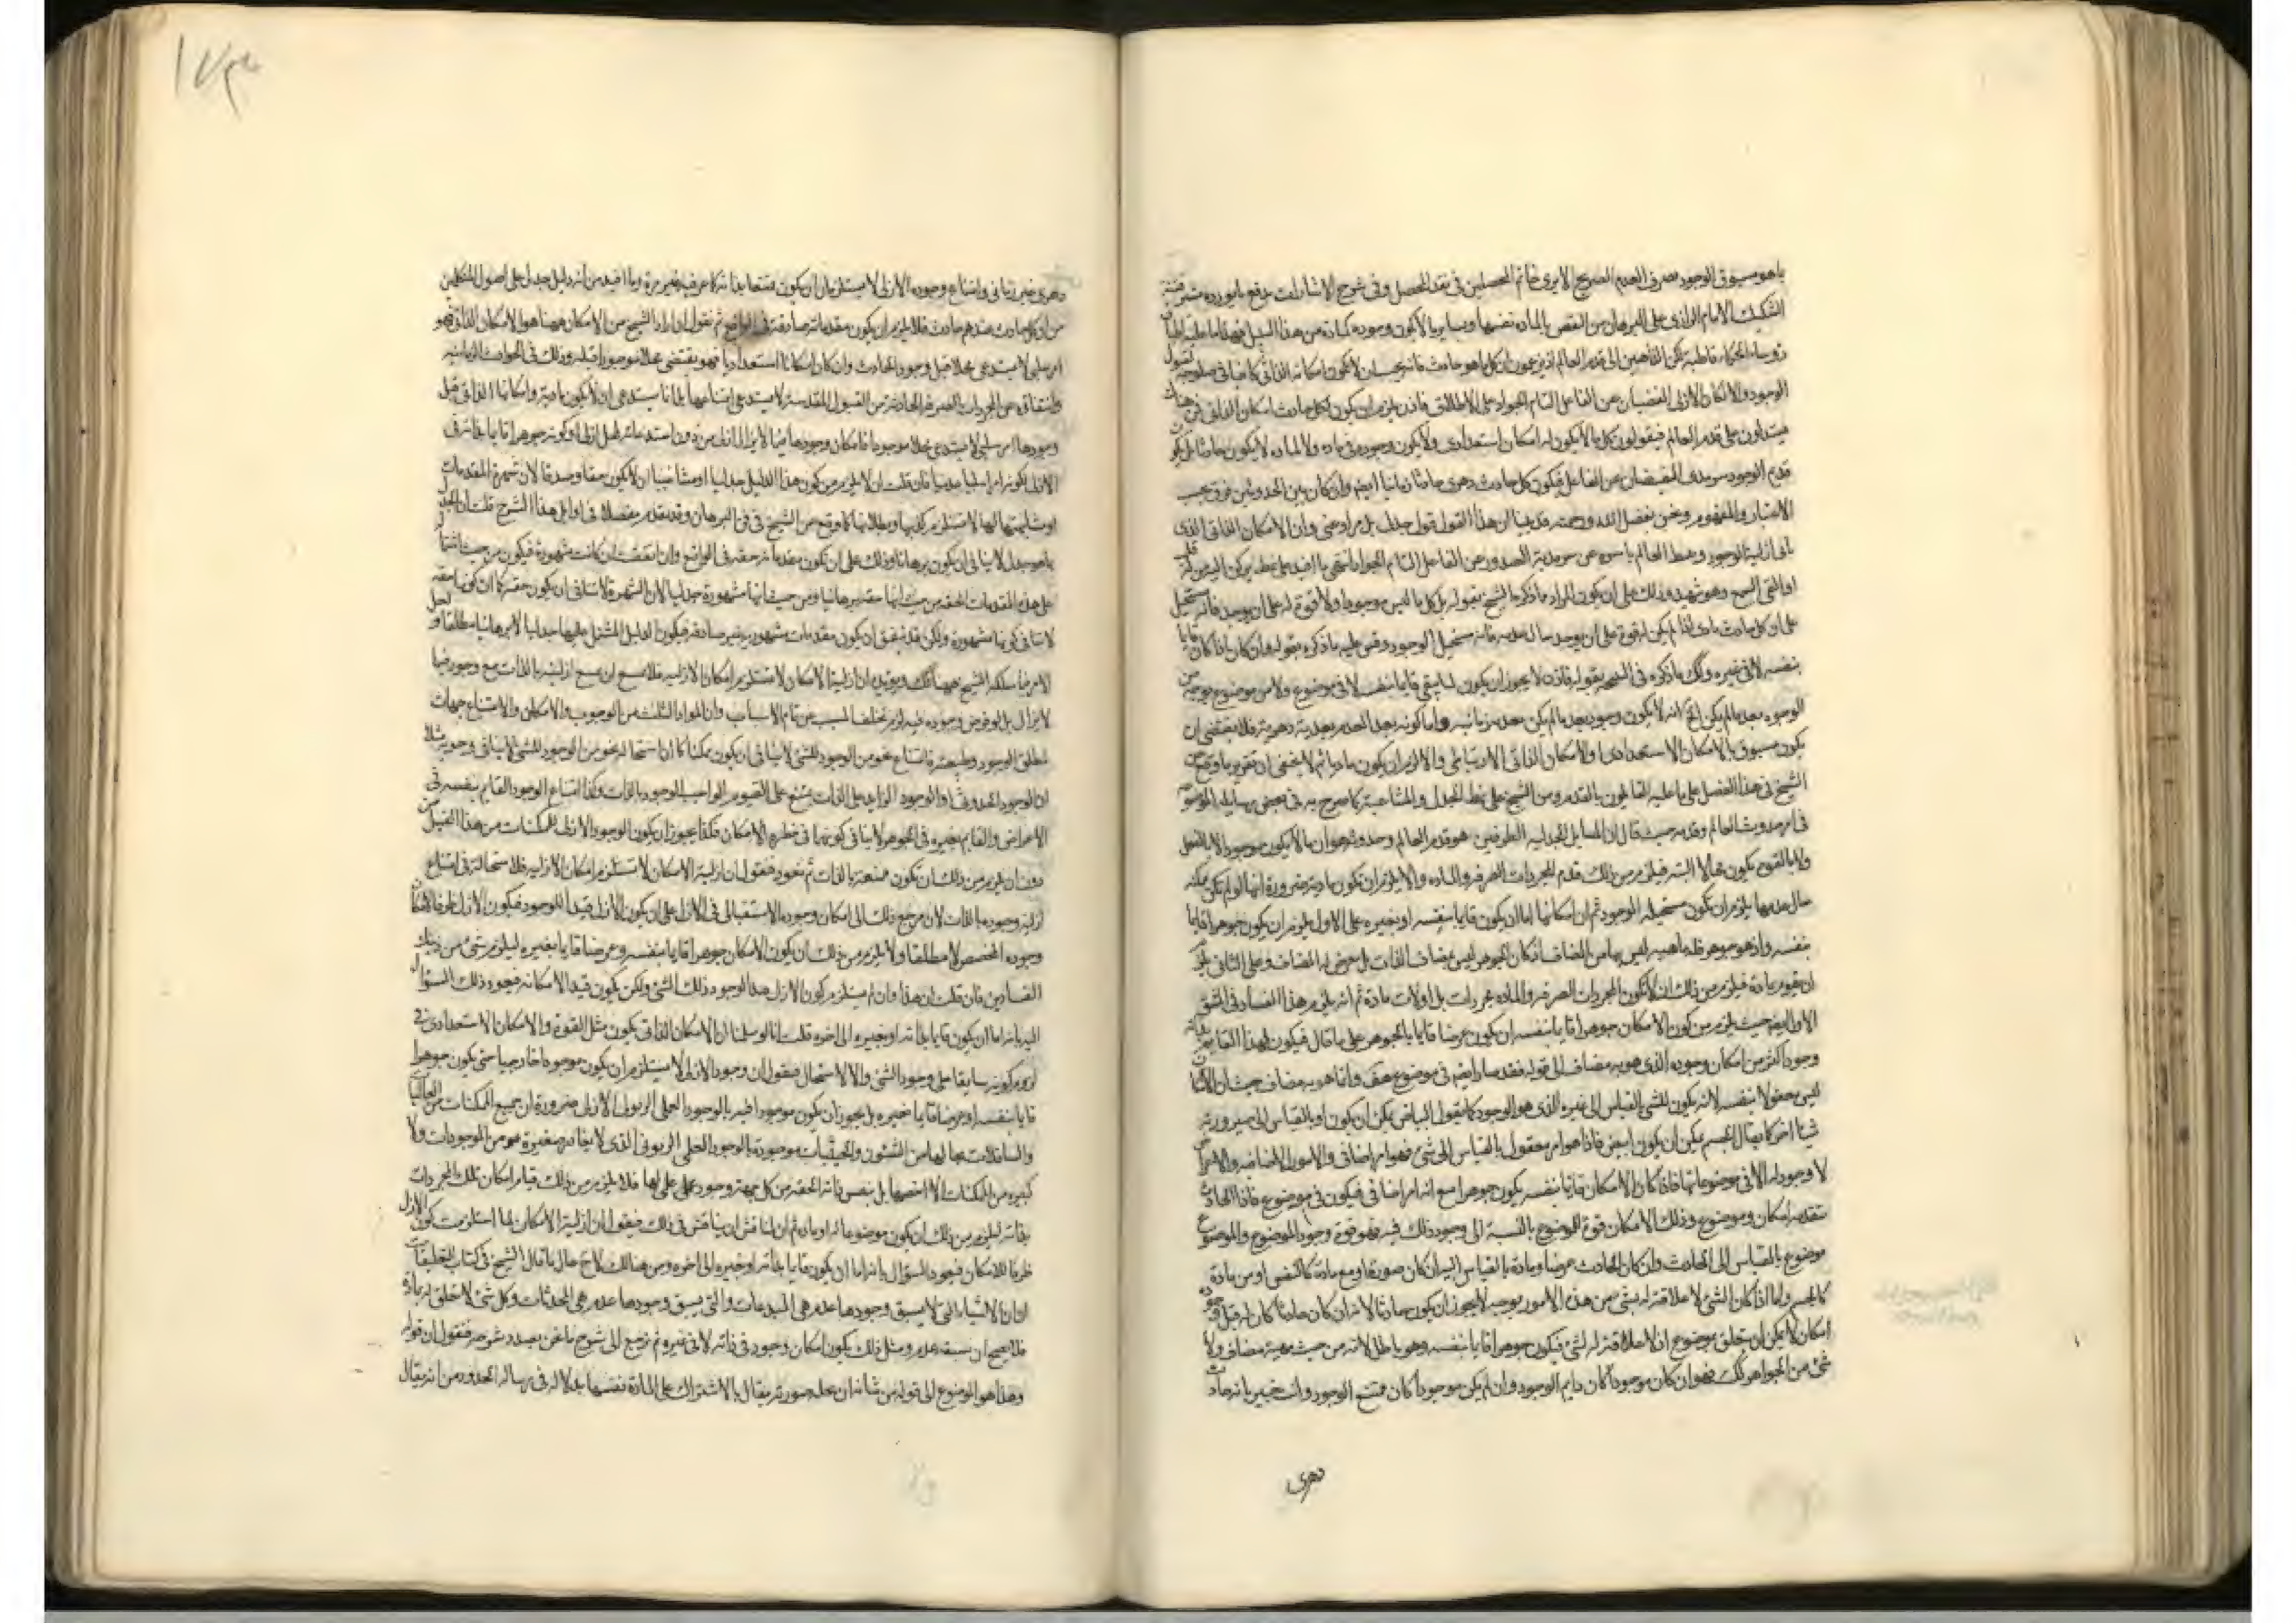 باهو مسبوق الوجود بصرف العدم الصريح الا يرى خاتم المحصلين فى نقد المحصل وفى شرح الاشارات يدفع ما يورده
التشكيك الامام الرازى على البرهان من النقض بالمادة نفسها وبما يرى لا يكون وجوده كمادة من هذا السبيل
رؤساء الحكماء قاطبة لكن الذاهبين الى قدم العالم اذ يزعمون ان كل ما هو حادث فانه يجب ان لا يكون امكانه الذاتى كافيا فى
الوجود والامكان الازلى الفيضان عن الفاعل التام الجواد على الاطلاق فاذن يلزم ان يكون لكل حادث امكان الذاتى
يستدلون على قدم العالم فيقولون كل ما لا يكون له امكان استعدادى ولا يكون وجوده فى مادة ولا لمادة لا يكون حادثا بل
قديم الوجود سرمدى الفيضان عن الفاعل فيكون كل حادث دهرى حادثا زمانيا ايضا وان كان بين الحدوثين فرق بحسب
الاعتبار والمفهوم ونحن بفضل الله ورحمته قد بينا ان هذا القول قول جدلى بل مرادى وان الامكان الذاتى الذى
يأبى ازلية الوجود وهبط العالم باسره عن سرمدية الصدور عن الفاعل التام الجواد انتهى ما افيد
او القى السمع وهو شهيد وذلك على ان يكون المراد ما ذكره الشيخ بقوله بل كل ما ليس موجودا ولا قوة له على ان يوجد فانه مستحيل
على ان كل حادث مادى لما لم يكن له قوة على ان يوجد حال عدمه فانه مستحيل الوجود وقس عليه ما ذكره بقوله وان كان اذا كان قايما
بنفسه لا فى غيره وكك ما ذكره فى الشجر بقوله فاذن لا يجوز ان يكون لما يبقى قايما بنفسه لا فى موضوع ولا من موضوع
الوجود بعد ما لم يكن الخ انه لا يكون وجود بعد ما لم يكن بعدية زمانية واما كونه بعد العدم بعدية دهرية فلا يقتضى ان
يكون مسبوق بالامكان الاستعدادى والامكان الذاتى الارتباطى والا لزم ان يكون ماديا ثم لا يخفى ان تقرير ما وقع من
الشيخ فى هذا الفصل على ما عليه القائلون بالقدم ومن الشيخ على نمط الجدل والمشاغبة كما صرح به فى بعض رسايله
فى امر حدوث العالم وقدمه حيث قال ان المسايل الجدلية الطرفين هو قدم العالم وحدوثه وان ما لا يكون موجودا لا بالفعل
ولا بالقوة يكون محالا البتة فيلزم من ذلك قدم المجردات الصرفة والمادة والا يلزم ان تكون مادية ضرورة انها لو لم تكن ممكنة
حال عدمها يلزم ان تكون مستحيلة الوجود ثم ان امكانها اما ان يكون قايما بنفسه او بغيره على الاول يلزم ان يكون جوهرا قايما
بنفسه واذ هو جوهر فله ماهية ليس بها من المضاف اذ كان الجوهر ليس بمضاف الذات بل يعرض له المضاف وعلى الثانى يلزم
ان يقوم بمادة فيلزم من ذلك ان لا تكون المجردات الصرفة والمادة مجردات بل اولات مادة ثم انه يلزم هذا الفساد فى الشق
الاول ايضا حيث يلزم من كون الامكان جوهرا قايما بنفسه ان يكون عرضا قايما بالجوهر على ما قال فيكون لهذا القايم
وجود اكثر من امكان وجوده الذى هو به مضاف الى قوله فقد صار ايضا فى موضوع هف وانما هو به مضاف حيث ان
ليس معقولا بنفسه لانه يكون للشئ بالقياس الى غيره الذى هو الوجود كما يقول البياض يمكن ان يكون او بالقياس الى صيرورته
شيئا اخر كما يقال الجسم يمكن ان يكون ابيض فاذا هو امر معقول بالقياس الى شئ فهو امر اضافى والامور الاضافيه والاعراض
لا وجود له الا فى موضوعاتها فاذا كان الامكان قايما بنفسه يكون جوهرا مع انه امر اضافى فيكون فى موضوع فاذا الحادث
يتقدمه امكان وموضوع وذلك الامكان قوة للموضوع بالنسبة الى وجود ذلك فيه فهو قوة وجود الموضوع والموضوع
موضوع بالقياس الى الحادث وان كان الحادث عرضا ومادة بالقياس اليه ان كان صورة او مع مادة كالنفس او من مادة
كالجسم واما اذا كان الشئ لا علاقة له بشئ من هذه الامور بوجه لا يجوز ان يكون حادثا لانه ان كان حادثا كان له قبل
امكان لا يمكن ان يتعلق بموضوع اذ لا علاقة له لشئ فيكون جوهرا قايما بنفسه وهو باطل لانه من حيث معية مضاف ولا
شئ من الجواهر كك فهو ان كان موجودا كان دايم الوجود وان لم يكن موجودا كان ممتنع الوجود وانت خبير بانه حادث
دهرى
دهرى غير زمانى وامتناع وجوده الازلى لا يستلزم ان يكون ممتنعا بذاته كما مر فيه غير مرة وما افيد من انه دليل جدلى على اصول المتكلمين
من ان كل حادث عندهم حادث فلا يلزم ان يكون مقدماته صادقة فى الواقع ثم نقول ان اراد الشيخ من الامكان ههنا هو الامكان الذاتى فهو
امر سلبى لا يستدعى محلا قبل وجود الحادث وان كان امكانا استعداديا فهو يقتضى محلا موجودا قبله وذلك فى الحوادث الزمانية
وانتفاؤه عن المجردات الصرفة الحادثة من القبول المقدسة لا يستدعى امتناعها بل انما يستدعى ان لا يكون مادية وامكانها الذاتى قبل
وجودها امر سلبى لا يستدعى محلا موجودا فامكان وجودها فيما لا يزال ازلى من دون استدعائه لمحل ازلى او كونه جوهرا قايما بذاته فى
الازل لكونه امرا سلبيا عدميا فان قلت ان لا يلزم من كون هذا الدليل جدليا او مشاغبيا ان لا يكون حقا وصدقا لان شهرة المقدمات
او مشابهتها لها لا تستلزم كذبها وبطلانها كما وقع من الشيخ فى فن البرهان وقد تقدم مفصلا فى اوايل هذا الشرح قلت ان الجدل
بما هو جدل لا ينافى ان يكون برهانا وذلك على ان تكون مقدماته حقة فى الواقع وان اتفقت ان كانت مشهورة فيكون من حيث
على هذه المقدمات الحقة من حيث انها حقة برهانيا ومن حيث انها مشهورة جدليا لان الشهرة لا تنافى ان يكون حقة كما ان كونها حقة
لا ينافى كونها مشهورة ولكن قد يتفق ان يكون مقدمات مشهورية غير صادقة فيكون الدليل المشتمل عليها جدليا لا برهانيا مطلقا
الامر فيما سلكه الشيخ ههنا كك ويؤيده ان ازلية الامكان لا تستلزم امكان الازلية فلا يصح ان يصح ازليته بالذات مع وجوده فيما
لا يزال بل لو فرض وجوده فيه لزم تخلف المسبب عن تمام الاسباب وان المواد الثلث من الوجوب والامكان والامتناع جهات
لمطلق الوجود وطبيعته فامتناع نحو من الوجود للشئ لا ينافى ان يكون ممكنا كما ان استحالة نحو من الوجود للشئ لا ينافى وجوبه مثلا
ان الوجود الحدوثى او الوجود الزايد على الذات يمتنع على القيوم الواجب الوجود بالذات وكذا امتناع الوجود القايم بنفسه فى
الاعراض والقايم بغيره فى الجوهر لا ينافى كونهما فى فطرة الامكان فكذا يجوز ان يكون الوجود الازلى للممكنات من هذا القبيل من
دون ان يلزم من ذلك ان تكون ممتنعة بالذات ثم نعود فنقول ان ازلية الامكان لا تستلزم امكان الازلية فلا استحالة فى امتناع
ازلية وجوده بالذات لان مرجع ذلك الى امكان وجوده الاستقبالى فى الازل على ان يكون الازل قيدا للوجود فيكون الازل ظرفا لامكان
وجوده المخصص لا مطلقا ولا يلزم من ذلك ان يكون الامكان جوهرا قايما بنفسه وعرضا قايما بغيره ليلزم شئ من ذينك
الفسادين فان قلت ان هذا وان لم يستلزم كون الازل هذا الوجود ذلك الشئ ولكن يكون قيد الامكانه فيعود ذلك السؤال
اليه بانه اما ان يكون قايما بذاته او بغيره الى اخره قلت انا لو سلمنا ان الامكان الذاتى يكون مثل القوة والامكان الاستعدادى فى
لزوم كونه سابقا على وجود الشئ والا لاستحال فنقول ان وجود الازلى لا يستلزم ان يكون موجودا خارجيا حتى يكون جوهرا
قايما بنفسه او عرضا قايما بغيره بل يجوز ان يكون موجودا فيه بالوجود العلمى الربوبى الازلى ضرورة ان جميع الممكنات من العاليات
والسافلات بما لها من الشئون والحيثيات موجودة بالوجود العلمى الربوبى الذى لا يغادر صغيرة من الموجودات ولا
كبيرة من الممكنات الا احصها بل بنفس ذاته الحقة من كل جهة وجود علمى لها فلا يلزم من ذلك قيام امكان تلك المجردات
بذاته ليلزم من ذلك ان يكون موضوعا له او مادة ثم ان لمناقش ان يناقش فى ذلك فيقول ان ازلية الامكان لما استلزمت كون الازل
ظرفا للامكان فيعود السؤال بانه اما ان يكون قايما بذاته او بغيره الى اخره ومن هنالك لاح حال ما قال الشيخ فى كتاب التعليقات
ان الاشياء التى لا يسبق وجودها عدم هى المبدعات والتى يسبق وجودها عدم هى المحدثات وكل شئ لا تعلق له بمادة
فلا يصح ان يسبقه عدم ومثل ذلك يكون امكان وجوده فى ذاته لا فى غيره ثم نرجع الى شرح ما نحن بصدد شرحه فنقول ان قوله
وهذا هو الموضوع الى قوله من شانه ان يحله صورة يقال بالاشتراك على المادة نفسها بدلالة فى رسالة الحدود من انه يقال